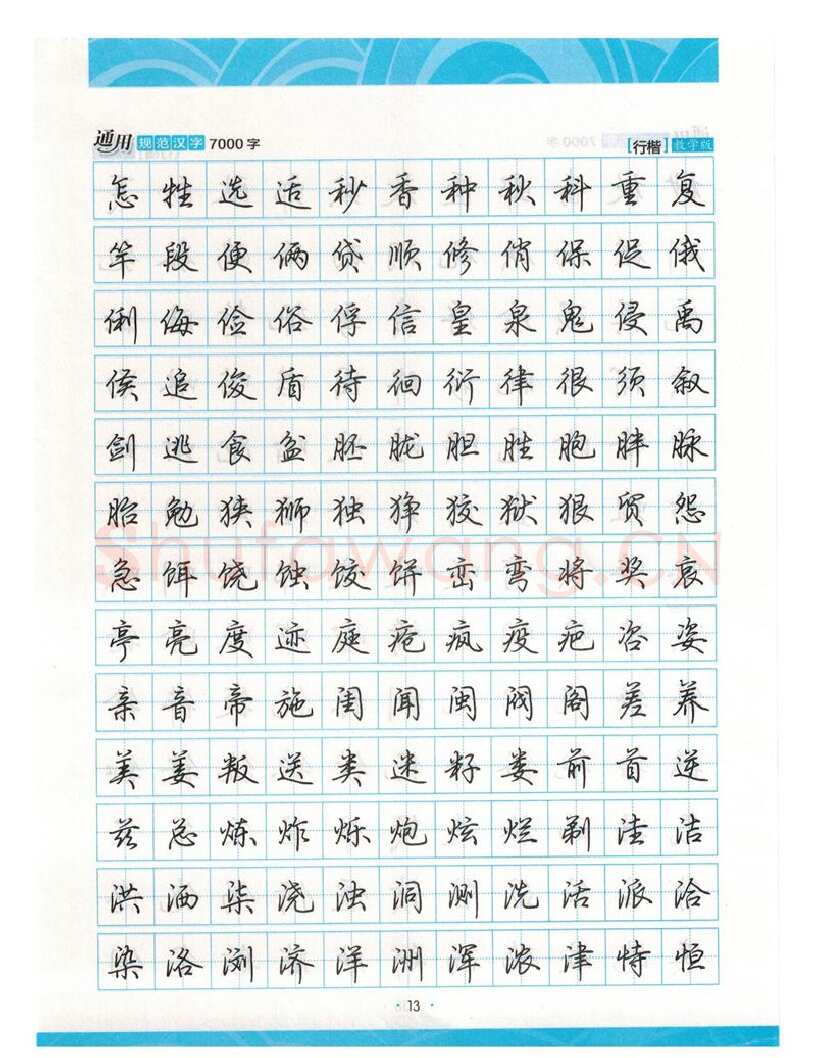 通用 规范汉字 7000字 [行楷] 教学版
怎牲选适秒香种秋科重复
竿段便俩贷顺修俏保促俄
俐侮俭俗俘信皇泉鬼侵禹
侯追俊盾待徊衍律很须叙
剑逃食盆胚胧胆胜胞胖脉
胎勉狭狮独狰狡狱狠贸怨
急饵饶蚀饺饼峦弯将奖哀
亭亮度迹庭疮疯疫疤咨姿
亲音帝施闺闻闽阀阁差养
美姜叛送类迷籽娄前首逆
兹总炼炸烁炮炫烂剃洼洁
洪洒柒浇浊洞测洗活派洽
染洛浏济洋洲浑浓津恃恒
Shufawang.CN
·13·